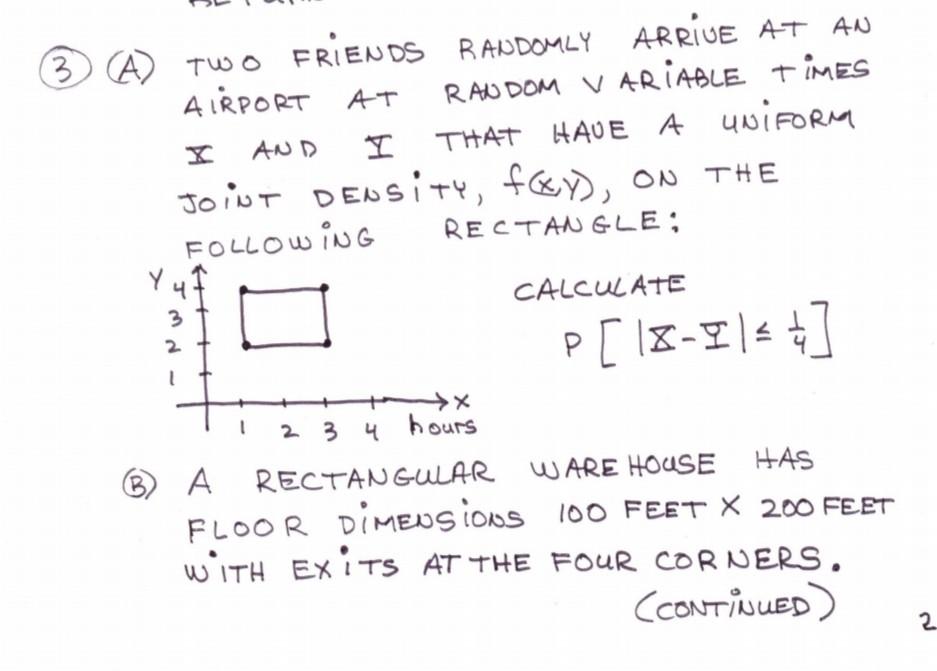 ③ (A) TWO FRIENDS RANDOMLY ARRIVE AT AN
AIRPORT AT RANDOM VARIABLE TIMES
X AND Y THAT HAVE A UNIFORM
JOINT DENSITY, f(x,y), ON THE
FOLLOWING RECTANGLE:
Y
4
3
2
1
1 2 3 4 hours
x
CALCULATE
P[|X-Y|≤ 1/4]
(B) A RECTANGULAR WAREHOUSE HAS
FLOOR DIMENSIONS 100 FEET X 200 FEET
WITH EXITS AT THE FOUR CORNERS.
(CONTINUED)
2